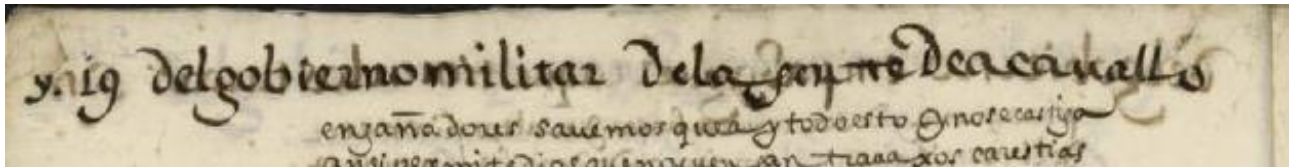 y. 19 del gobierno militar de la gente de a cauallo
engañadores sauemos que ay todo esto q no se castiga
carestias